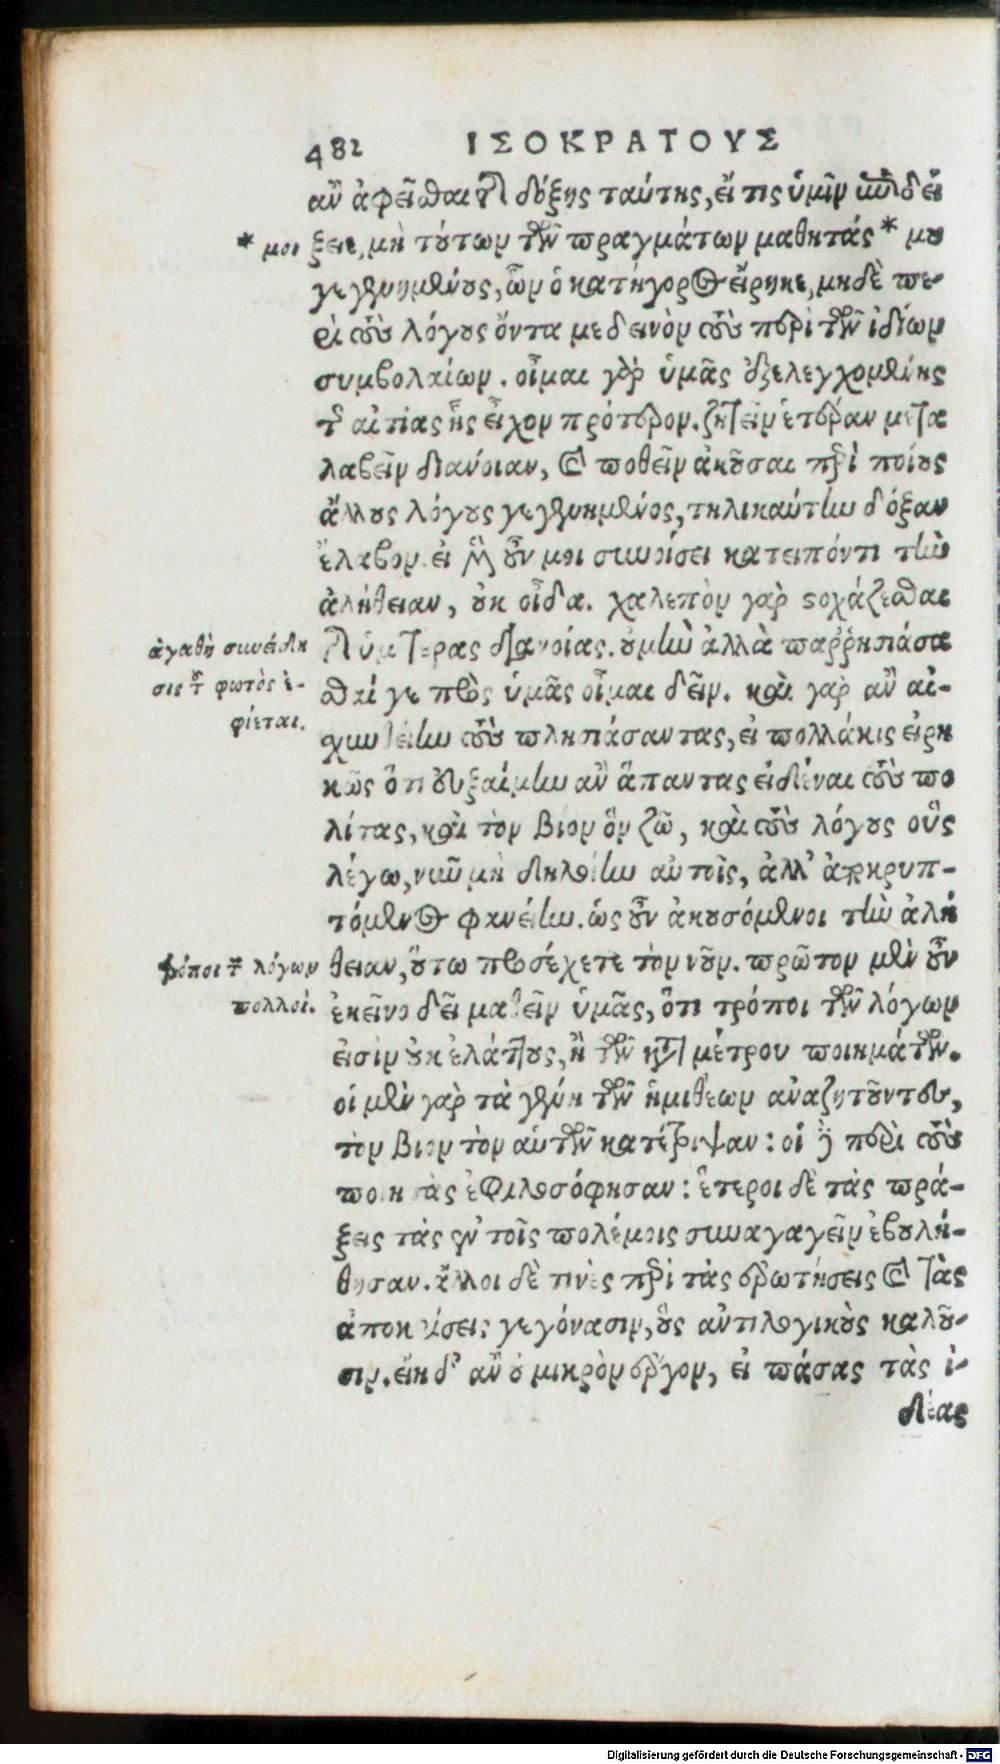 482 ΙΣΟΚΡΑΤΟΥΣ
ἂν ἀφεῖσθαι τῆς δόξης ταύτης, εἴ τις ὑμῖν ἐπιδεί
ξειε, μὴ τούτων τῶν πραγμάτων μαθητάς * μου
* μοι
γεγενημένους, ὧν ὁ κατήγορος εἴρηκε, μηδὲ πε-
ρὶ τοὺς λόγους ὄντα με δεινὸν τοὺς περὶ τῶν ἰδίων
συμβολαίων. οἶμαι γὰρ ὑμᾶς ἐξελεγχομένης
τῆς αἰτίας ἧς εἶχον πρότερον. ζητεῖν ἑτέραν μετα
λαβεῖν διάνοιαν, καὶ ποθεῖν ἀκοῦσαι περὶ ποίους
ἄλλους λόγους γεγενημένος, τηλικαύτην δόξαν
ἔλαβον. εἰ μὲν οὖν μοι συνοίσει κατειπόντι τὴν
ἀλήθειαν, οὐκ οἶδα. χαλεπὸν γὰρ στοχάζεσθαι
τῆς ὑμετέρας διανοίας. οὐ μὴν ἀλλὰ παρρησιάσα
ἀγαθὴ συνείδη
σις τοῦ φωτὸς ἐ-
φίεται.
σθαί γε πρὸς ὑμᾶς οἶμαι δεῖν. καὶ γὰρ ἂν αἰ-
σχυνθείην τοὺς πλησιάσαντας, εἰ πολλάκις εἰρη
κὼς ὅτι δεξαίμην ἂν ἅπαντας εἰδέναι τοὺς πο
λίτας, καὶ τὸν βίον ὃν ζῶ, καὶ τοὺς λόγους οὓς
λέγω, νῦν μὴ δηλοίην αὐτοῖς, ἀλλ' ἀποκρυπ-
τόμενος φανείην. ὡς οὖν ἀκουσόμενοι τὴν ἀλή
θειαν, οὕτω προσέχετε τὸν νοῦν. πρῶτον μὲν οὖν
τρόποι τῶν λόγων
πολλοί.
ἐκεῖνο δεῖ μαθεῖν ὑμᾶς, ὅτι τρόποι τῶν λόγων
εἰσὶν οὐκ ἐλάττους, ἢ τῶν μετὰ μέτρου ποιημάτων.
οἱ μὲν γὰρ τὰ γένη τῶν ἡμιθέων ἀναζητοῦντες,
τὸν βίον τὸν αὑτῶν κατέτριψαν: οἱ δὲ περὶ τοὺς
ποιητὰς ἐφιλοσόφησαν: ἕτεροι δὲ τὰς πρά-
ξεις τὰς ἐν τοῖς πολέμοις συναγαγεῖν ἐβουλή-
θησαν. ἄλλοι δὲ τινὲς περὶ τὰς ἐρωτήσεις καὶ τὰς
ἀποκρίσεις γεγόνασιν, οὓς ἀντιλογικοὺς καλοῦ-
σιν. εἴη δ' ἂν οὐ μικρὸν ἔργον, εἰ πάσας τὰς ἰ-
δέας
Digitalisierung gefördert durch die Deutsche Forschungsgemeinschaft - DFG